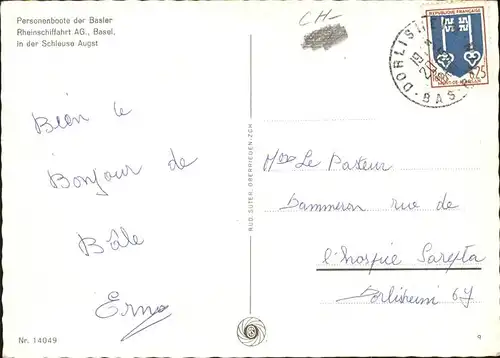 Personenboote der Basler
Rheinschiffahrt AG., Basel,
in der Schleuse Augst
CH-
REPUBLIQUE FRANÇAISE
0,25
DORLIS
BAS-
Bien le
Bonjour de
Bâle
Erna
RUD. SUTER, OBERRIEDEN-ZCH.
Le Pasteur
Dammeron rue de
l'hospice Sarepta
Dorlisheim 67
Nr. 14049
9